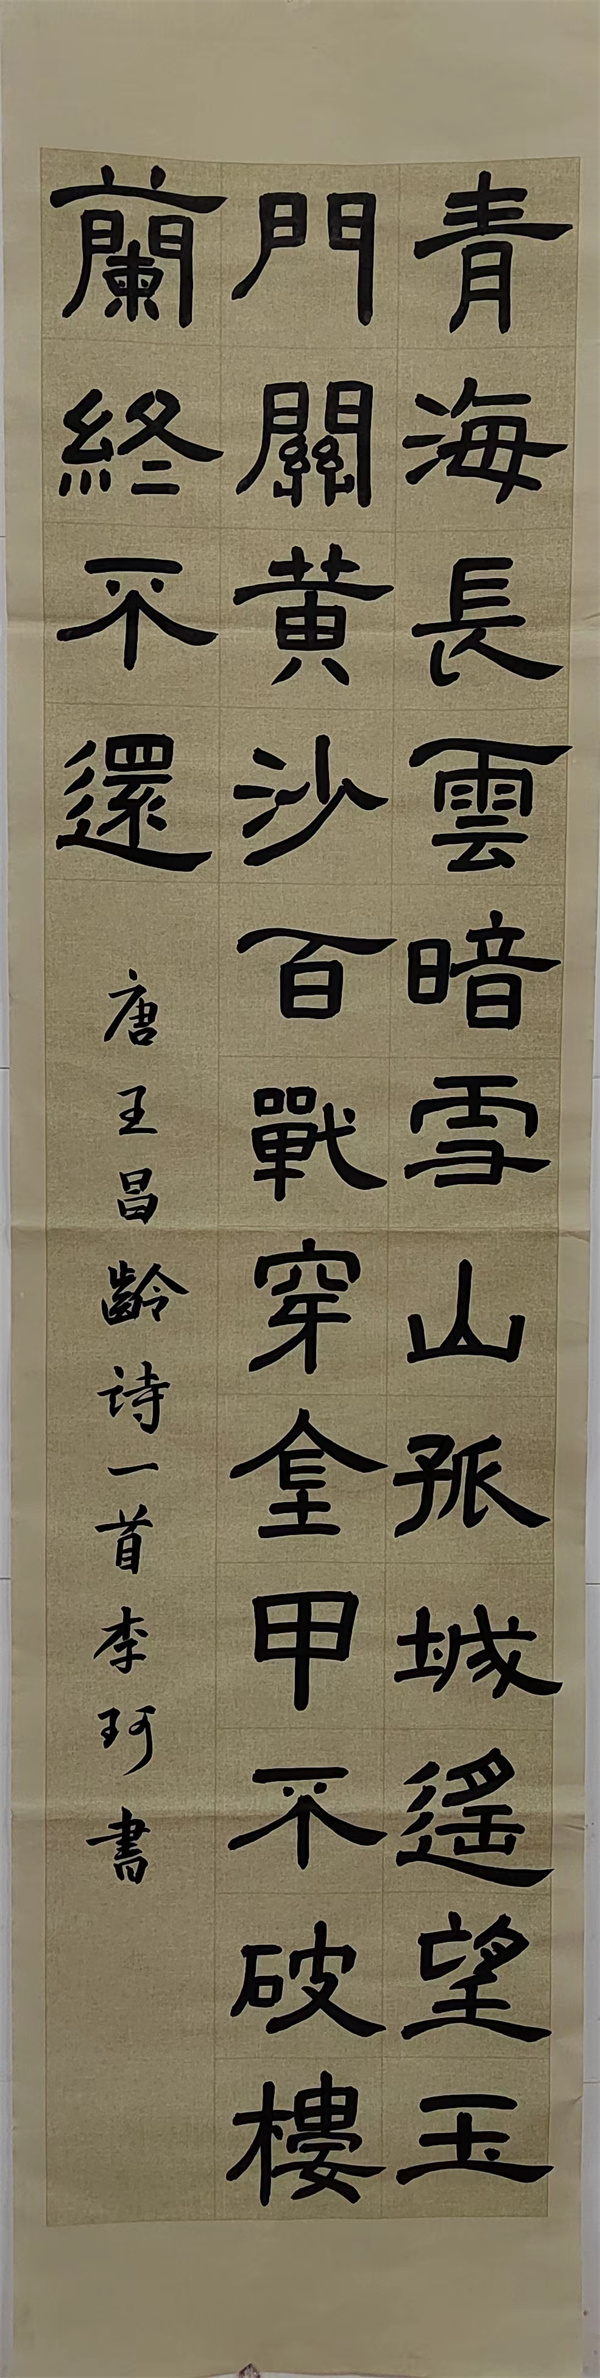 青海長雲暗雪山孤城遥望玉
門關黄沙百戰穿金甲不破樓
蘭終不還
唐王昌齡诗一首李珂書